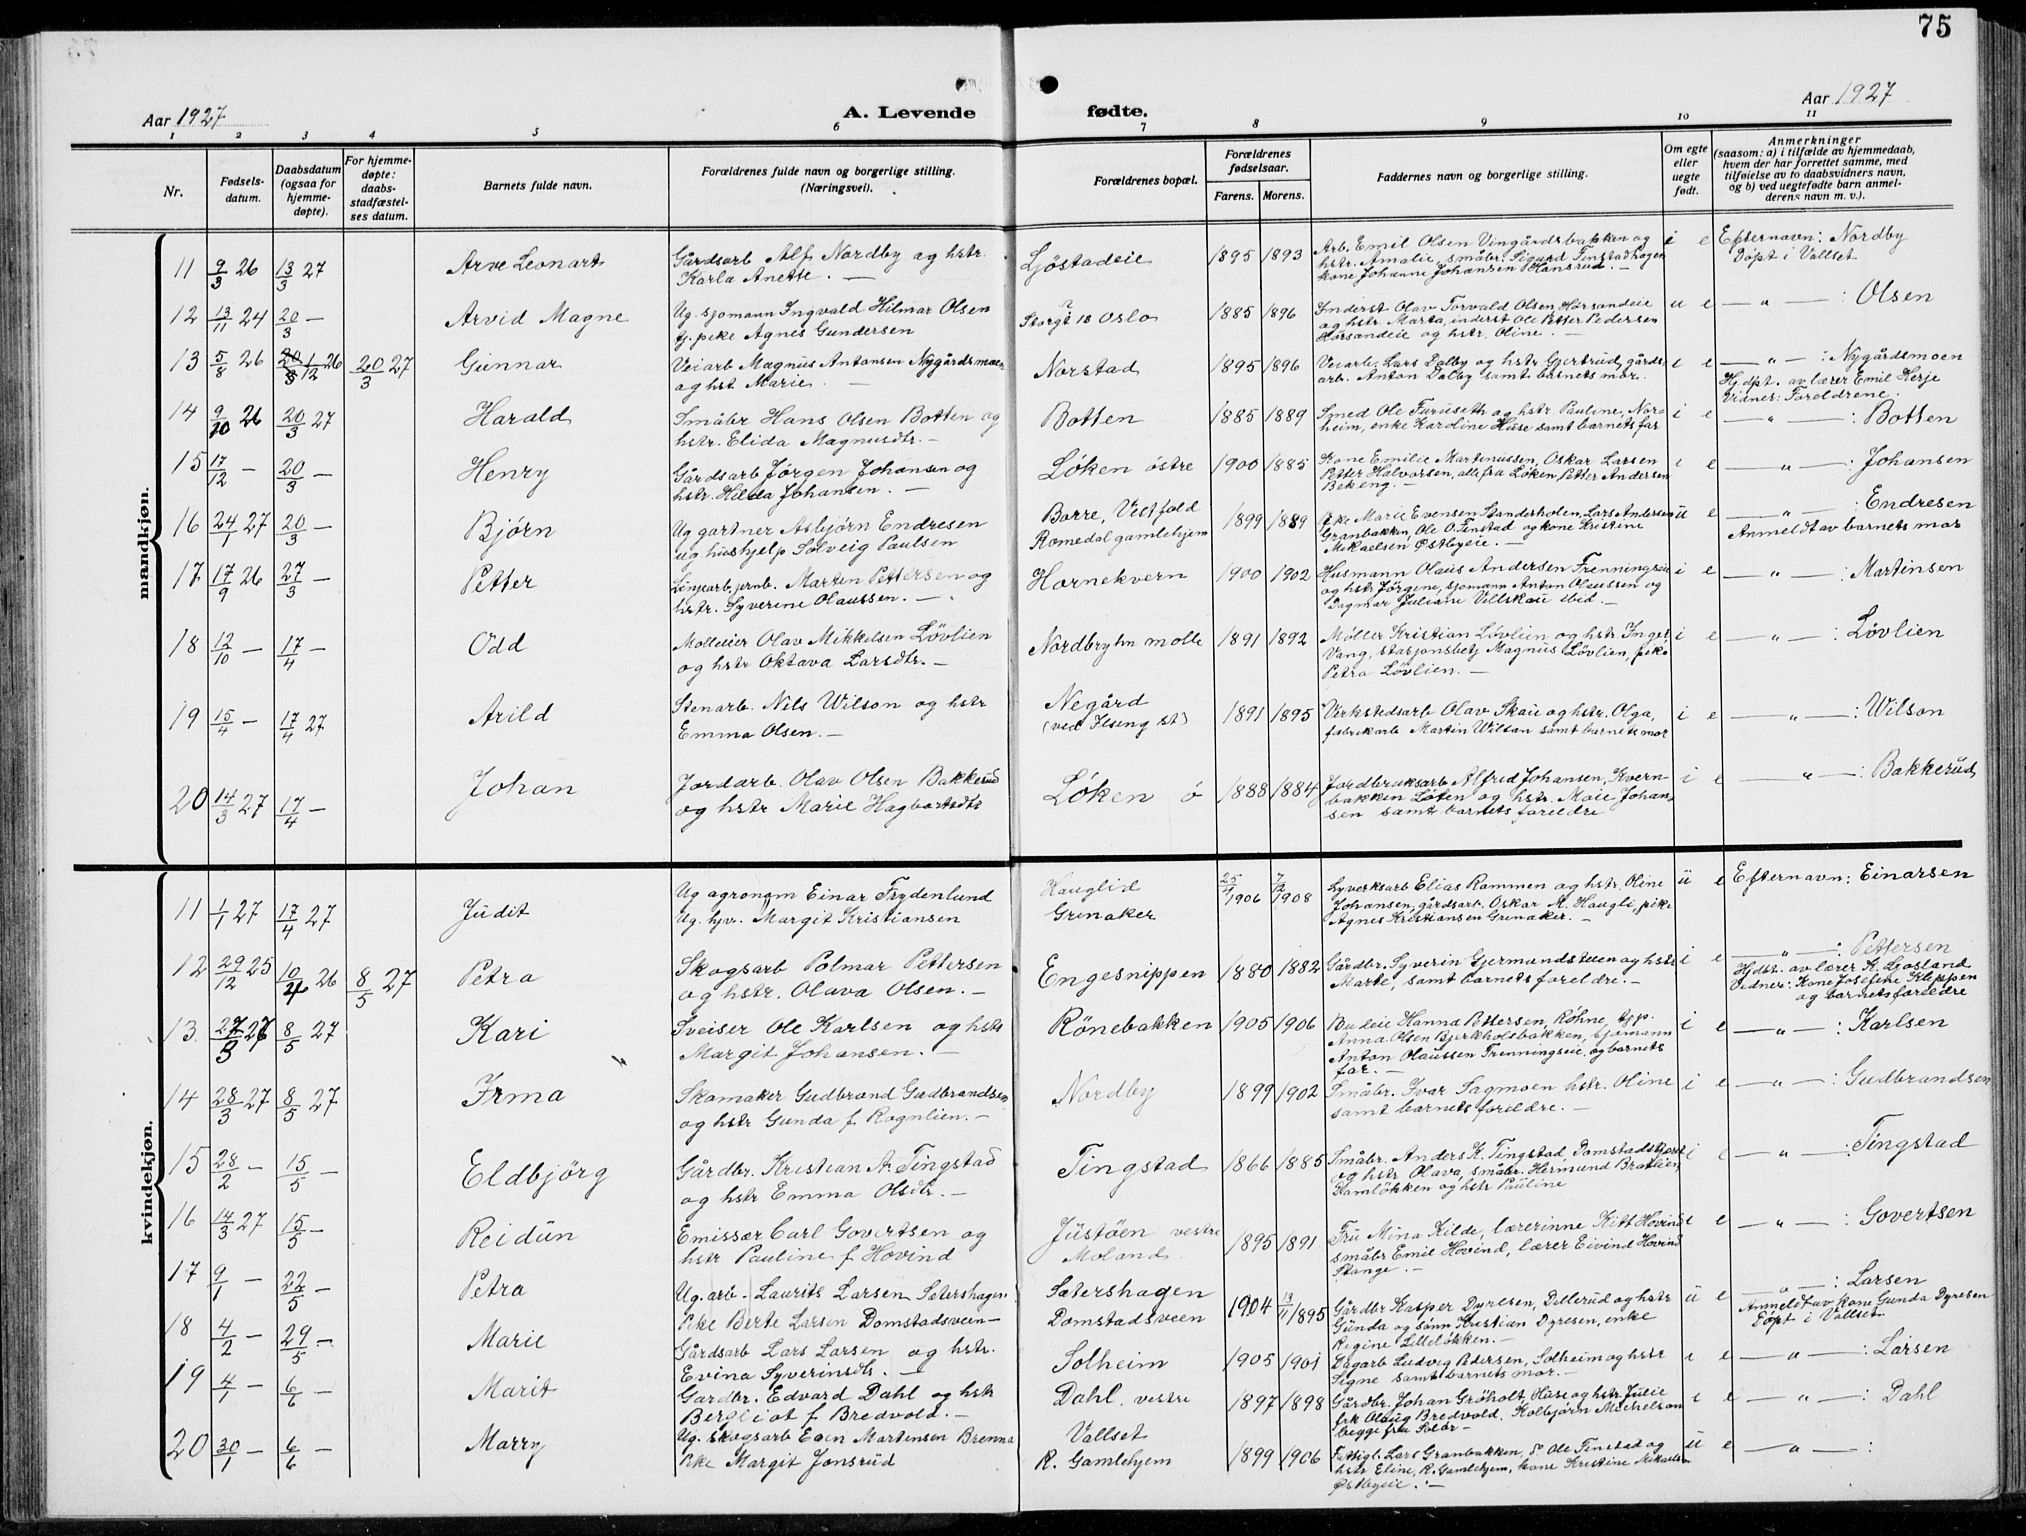 75
Aar 1927
A. Levende
fødte.
Aar 1927
1 2 3 4 5 6 7 8 9 10 11
Nr.
Fødsels-
datum.
Daabsdatum
(ogsaa for
hjemme-
døpte).
For hjemme-
døpte:
daabs-
stadfæstel-
ses datum.
Barnets fulde navn.
Forældrenes fulde navn og borgerlige stilling.
(Næringsvei).
Forældrenes bopæl.
Forældrenes
fødselsaar.
Farens. Morens.
Faddernes navn og borgerlige stilling.
Om egte
eller
uegte
født.
Anmerkninger
(saasom: a) i tilfælde av hjemmedaab,
hvem der har forrettet samme, med
tilføielse av to daabsvidners navn,
og b) ved uegtefødte barn anmel-
derens navn m. v.).
mandkjøn.
11 9/3 26 13/3 27 Arve Leonart
Gårdsarb Alf Nordby og hstr.
Karla Anette. —
Ljöstadeie 1895 1893
Arb. Emil Olsen Vingårdsbakken og
hstr. Amalie, småbr. Sigurd Finstadhagen
kone Johanne Johansen Hansrud. —
i e Efternavn: Nordby
Døpt i Vallset
12 13/11 24 20/3 — Arvid Magne
Ug. sjømann Ingvald Hilmar Olsen
tj. pike Agnes Gundersen
Storgt 18 Oslo 1885 1896
Inderst Olav Torvald Olsen, Horsandeie
og hstr. Marta, inderst Ole Petter Pedersen
Horsandeie og hstr. Oline. —
u e — " — : Olsen
13 5/8 26 1/12 26 20/3 27 Gunnar
Veiarb Magnus Antonsen Nygårdsmoen
og hst Marie. —
Norstad 1895 1896
Veiarb. Lars Dalby og hstr Gjertrud, gårds-
arb. Anton Dalby samt barnets mor.
i e — " — : Nygårdsmoen
Hj.dpt. av lærer Emil Herje
Vidner: Foreldrene.
14 9/10 26 20/3 27 Harald
Småbr Hans Olsen Botten og
hstr. Elida Magnusdtr. —
Botten 1885 1889
Smed Ole Furuseth og hstr. Pauline, Nor-
heim, enke Karoline Huse samt barnets far
i e — " — : Botten
15 17/12 — 20/3 — Henry
Gårdsarb. Jørgen Johansen og
hstr. Hilda Johansen. —
Löken östre 1900 1885
Kone Emilie Martinussen, Oskar Larsen
Petter Halvorsen, alle fra Løken Petter Andersen
Bekeng. —
i e — " — : Johansen
16 24/1 27 20/3 — Bjørn
Ug gartner Asbjørn Endresen
ug hushjelp Solveig Paulsen
Borre, Vestfold
Romedal gamlehjem 1899 1889
Marie Evensen Standerholen, Lars Andersen
Granbakken, Ole O. Finstad og kone Kristine
Mikaelsen Østbyeie. —
u e — " — : Endresen
Anmeldt av barnets mor
17 17/9 26 27/3 — Petter
Linjearb. jernb. Martin Pettersen og
hstr. Syverine Olaussen. —
Hornekvern 1900 1902
Husmann Olaus Andersen Frenningseie
og hstr Jörgine, sjømann Anton Olaussen og
Dagmar Juliane Villskau ibid. —
i e — " — : Martinsen
18 12/10 — 17/4 — Odd
Molleier Olav Mikkelsen Lövlien
og hstr Oktava Larsdtr. —
Nordbryhn molle 1891 1892
Møller Kristian Lövlien og hstr Inger
Vang, stasjonsbetj Magnus Lövlien, pike
Petra Lövlien. —
i e — " — : Lövlien
19 15/4 — 17/4 27 Arild
Stenarb. Nils Wilson og hstr
Emma Olsen. —
Negård
(ved Ilseng st) 1891 1895
Verkstedsarb Olav Skau og hstr. Olga,
fabrikarb Martin Wilson samt barnets mor
i e — " — : Wilson
20 14/3 27 17/4 — Johan
Jordarb. Olav Olsen Bakkerud
og hstr Marie Hagbartsdtr
Löken ö 1888 1884
Jordbruksarb Alfred Johansen, Kvern-
bakken Löten og hstr. Maie Johan-
sen samt barnets foreldre
i e — " — : Bakkerud
kvindekjøn.
11 1/1 27 17/4 27 Judit
Ug agronom Einar Frydenlund
Ug. hjv. Margit Kristiansen
Hauglid
Grinaker 1906 7/12 1908
Lyverksarb Elias Rammen og hstr. Oline
Johansen, gårdsarb. Oskar M. Haugli, pike
Agnes Kristiansen Grinaker. —
u e Efternavn: Einarsen
12 29/12 25 10/4 26 8/5 27 Petra
Skogsarb Polmar Pettersen
og hstr. Olava Olsen. —
Engesnippen 1880 1882
Gårdbr. Syverin Gjermundstuen og hstr
Marte, samt barnets foreldre. —
i e — " — : Pettersen
Hjdst. av lærer K. Ljøsland
Vidner: Kone Josefine Kleppen
og barnets foreldre
13 27/3 8/5 27 Kari
Sveiser Ole Karlsen og hstr
Margit Johansen. —
Rönebakken 1905 1906
Budeie Hanna Pettersen, Røhne, tjp.
Anna Olsen Bjerkholsbakken, sjømann
Anton Olaussen Frenningseie, og barnets
far. —
i e — " — : Karlsen
14 28/3 27 8/5 27 Irma
Skomaker Gudbrand Gudbrandsen
og hstr Gunda f. Rognlien. —
Nordby 1899 1902
Småbr. Ivar Sagmoen hstr. Oline
samt barnets foreldre. —
i e — " — : Gudbrandsen
15 28/2 — 15/5 — Eldbjörg
Gårdbr. Kristian A. Tingstad
og hstr Emma Olsdtr. —
Tingstad 1866 1885
Småbr. Anders K. Tingstad,
og hstr Olava, småbr. Hermund Bratlien,
Damløkken og hstr Pauline
i e — " — : Tingstad
16 14/3 27 15/5 — Reidun
Emissær Carl Govertsen og
hstr Pauline f Hovind
Justöen vestre
Moland 1895 1891
Fru Mina Kilde, lærerinne Kitt Hovind
småbr Emil Hovind, lærer Eivind Hovind
Stange. —
i e — " — : Govertsen
17 9/1 — 22/5 — Petra
Ug. arb. Laurits Larsen Satershagen
Pike Berte Larsen Domstadsveen —
Satershagen
Domstadsveen 1904 13/11 1895
Gårdbr Kasper Dyresen, Dillerud og hstr
Gunda og sönn Kristian Dyresen, enke
Regine Lilleløkken. —
u e — " — : Larsen
Anmeldt av kone Gunda Dyresen
Döpt i Vallset
18 4/2 — 29/5 — Marie
Gårdsarb Lars Larsen og hstr.
Evina Syverinsdtr. —
Solheim 1905 1901
Dagarb Ludvig Pedersen, Solheim og hstr
Signe samt barnets mor. —
i e — " — : Larsen
19 4/1 — 6/6 — Marit
Gårdbr. Edvard Dahl og hstr
Bergliot f Bredvold. —
Dahl. vestre 1897 1898
Gårdbr. Johan Gröholt, Huse og hstr. Julie
frk Olaug Bredvold, Kolbjørn Michelson
begge fra Solør —
i e — " — : Dahl
20 30/1 — 6/6 — Marry
Ug. skogsarb Even Martinsen Brenna
Pke Margit Jonsrud
Vallset
R. Gamlehjem 1899 1906
Fattigl. Lars Granbakken, Ole Finstad og
hstr Eline, R. Gamlehjem, kone Kristine Mikaels-
Østbyeie. —
u e — " — :